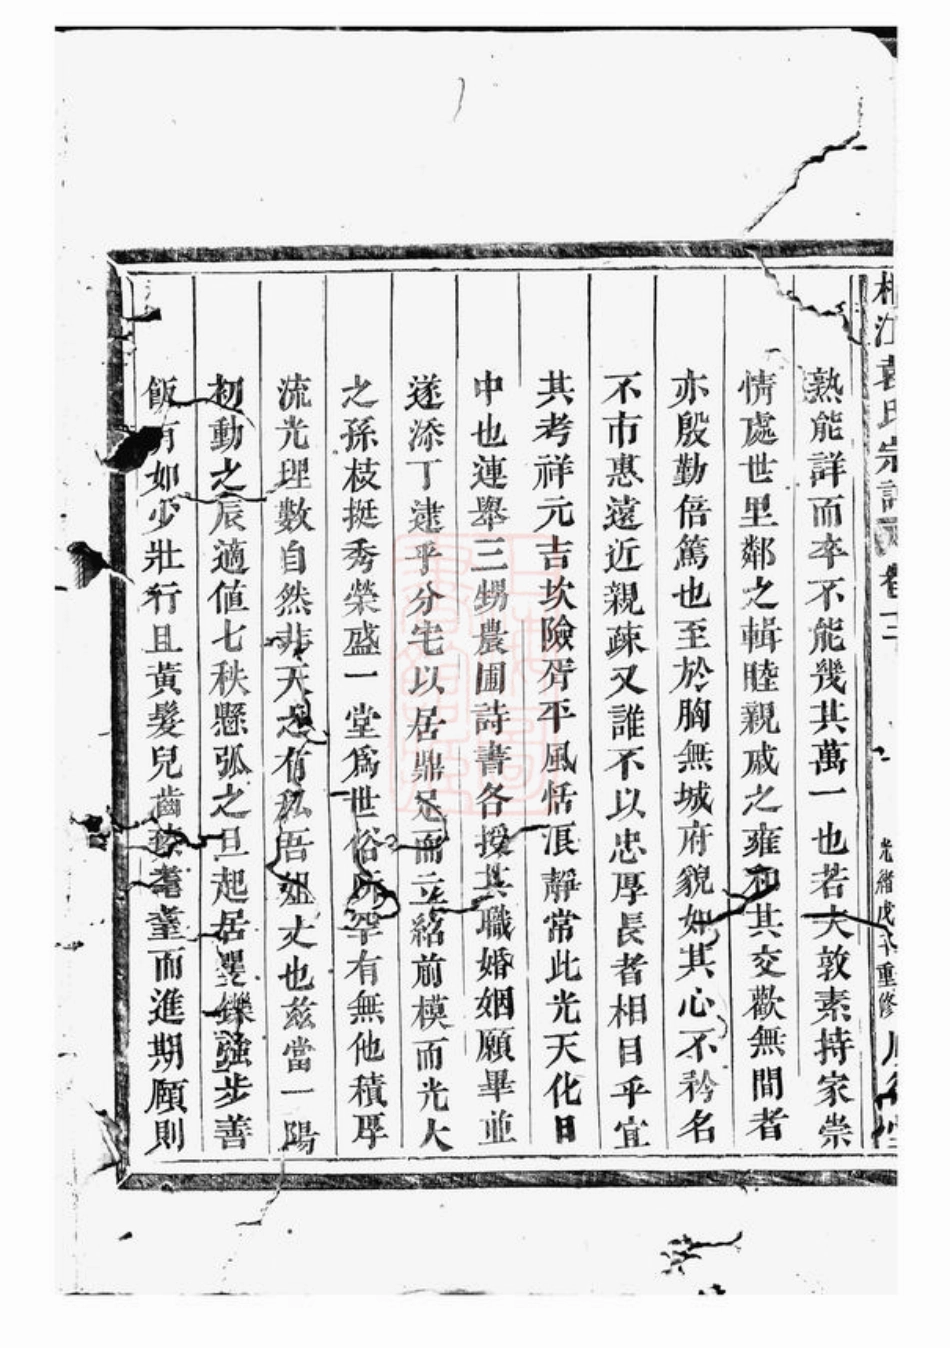 江袁氏宗譜
卷十三
光緒戊 重修
孰能詳而卒不能幾其萬一也若夫敦素持家崇
情處世里鄰之輯睦親戚之雍和其交歡無間者
亦殷勤倍篤也至於胸無城府貌如其心不矜名
不市惠遠近親疎又誰不以忠厚長者相目乎宜
其考祥元吉坎險胥平風恬浪靜常此光天化日
中也連舉三甥農圃詩書各授其職婚姻願畢並
遂添丁建平分宅以居鼎足而立紹前模而光大
之孫枝挺秀榮盛一堂爲世俗所罕有無他積厚
流光理數自然非天之有私吾姐丈也茲當一陽
初動之辰適值七秩懸弧之旦起居矍鑠強步善
飯有如少壯行且黃髮兒齒 耄耋而進期頤則